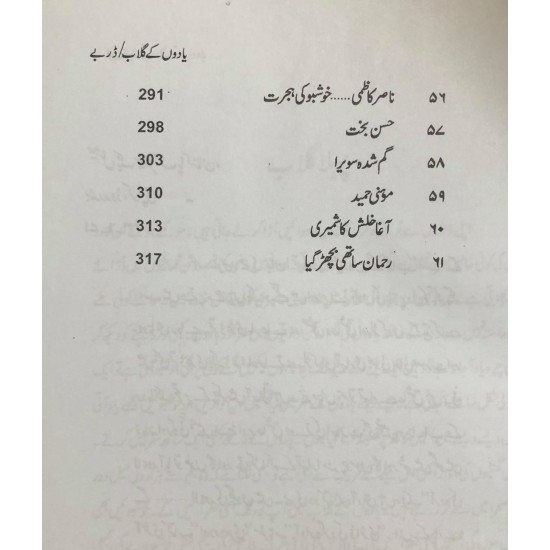 یادوں کے گلاب/ڈربے
۵۶ ناصر کاظمی......خوشبو کی ہجرت 291
۵۷ حسن بخت 298
۵۸ گم شدہ سویرا 303
۵۹ موہنی حمید 310
۶۰ آغا خلش کاشمیری 313
۶۱ رحمان ساتھی بچھڑ گیا 317